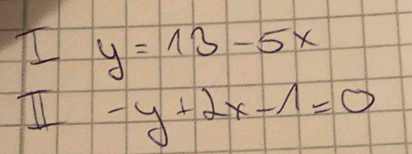 I y = 13 - 5x
II -y + 2x - 1 = 0